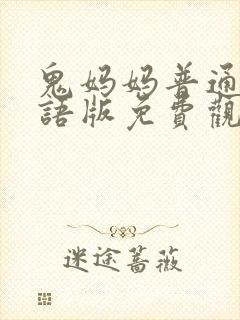 鬼妈妈普通
語版免費觀
迷途蔷薇